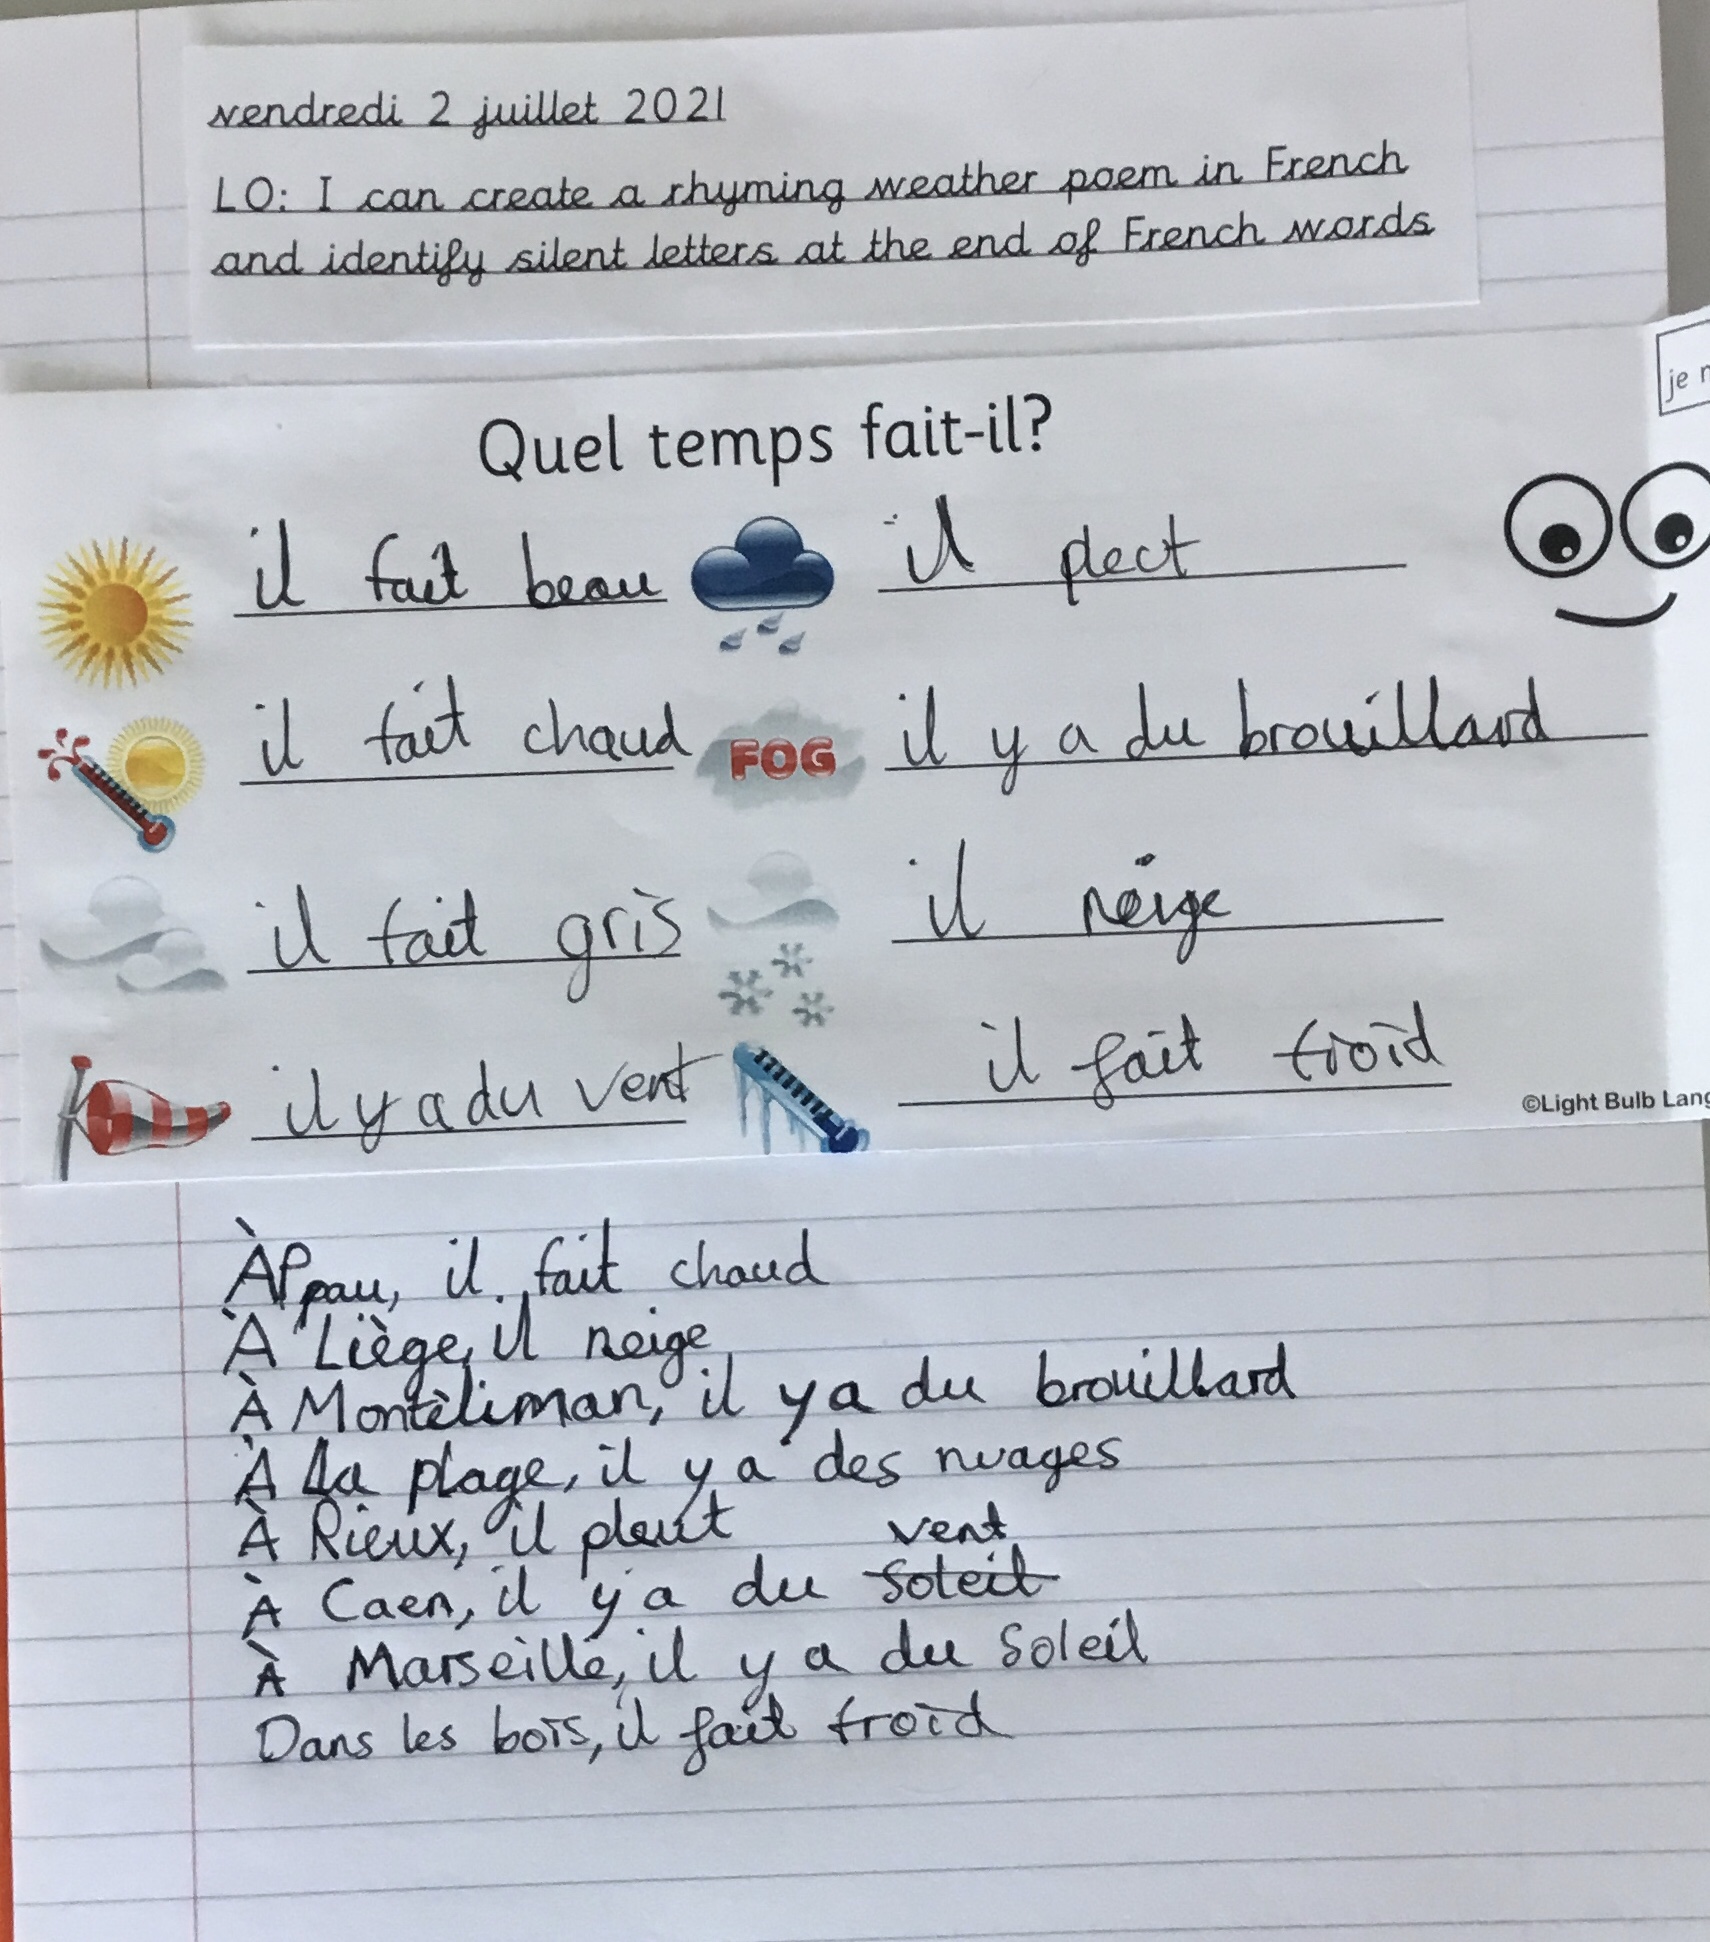 vendredi 2 juillet 2021
LO: I can create a rhyming weather poem in French
and identify silent letters at the end of French words
je
Quel temps fait-il?
il fait beau
il plect
il fait chaud
FOG
il y a du brouillard
il fait gris
il neige
il y a du vent
il fait froid
©Light Bulb Lang
À Ppau, il fait chaud
À Liège, il neige
À Montèliman, il y a du brouillard
À la plage, il y a des nuages
À Rieux, il pleut
vent
À Caen, il y a du soleil
À Marseille, il y a du soleil
Dans les bois, il fait froid